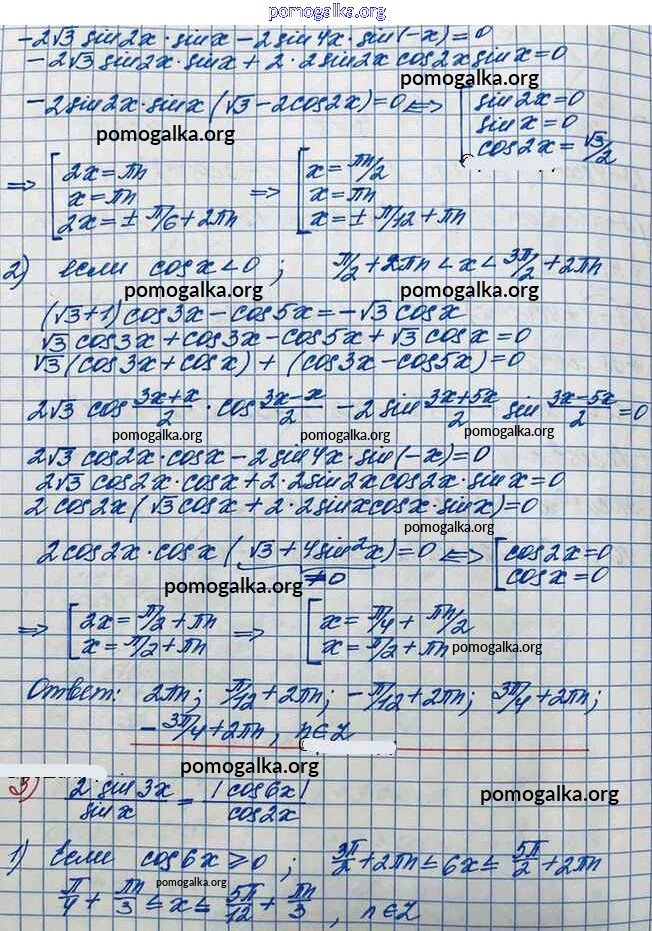 pomogalka.org
-2√3 sin2x·sinx - 2sin4x·sin(-x)=0
-2√3 sin2x·sinx + 2·2sin2x cos2x sinx=0
pomogalka.org
-2sin2x·sinx(√3-2cos2x)=0 <=> [ sin2x=0
sinx=0
cos2x=√3/2
pomogalka.org
=> [ 2x=πn => [ x=πn/2
x=πn x=πn
2x=±π/6+2πn x=±π/12+πn
2) если cosx<0; π/2+2πn<x<3π/2+2πn
pomogalka.org pomogalka.org
(√3+1)cos3x-cos5x=-√3 cosx
√3 cos3x+cos3x-cos5x+√3 cosx=0
√3(cos3x+cosx)+(cos3x-cos5x)=0
2√3 cos (3x+x)/2 · cos (3x-x)/2 - 2sin (3x+5x)/2 sin (3x-5x)/2 =0
pomogalka.org pomogalka.org pomogalka.org
2√3 cos2x·cosx-2sin4x·sin(-x)=0
2√3 cos2x·cosx+2·2sin2x cos2x·sinx=0
2cos2x(√3cosx+2·2sinxcosx·sinx)=0
pomogalka.org
2cos2x·cosx(√3+4sin²x)=0 <=> [ cos2x=0
≠0 cosx=0
pomogalka.org pomogalka.org
=> [ 2x=π/2+πn => [ x=π/4+πn/2
x=π/2+πn x=π/2+πn pomogalka.org
Ответ: 2πn; π/12+2πn; -π/12+2πn; 3π/4+2πn;
-3π/4+2πn, n∈Z
pomogalka.org
3) 2sin3x/sinx = |cos6x|/cos2x
pomogalka.org
1) Если cos6x≥0; 3π/2+2πn≤6x≤5π/2+2πn
pomogalka.org
π/4+πn/3≤x≤5π/12+πn/3, n∈Z